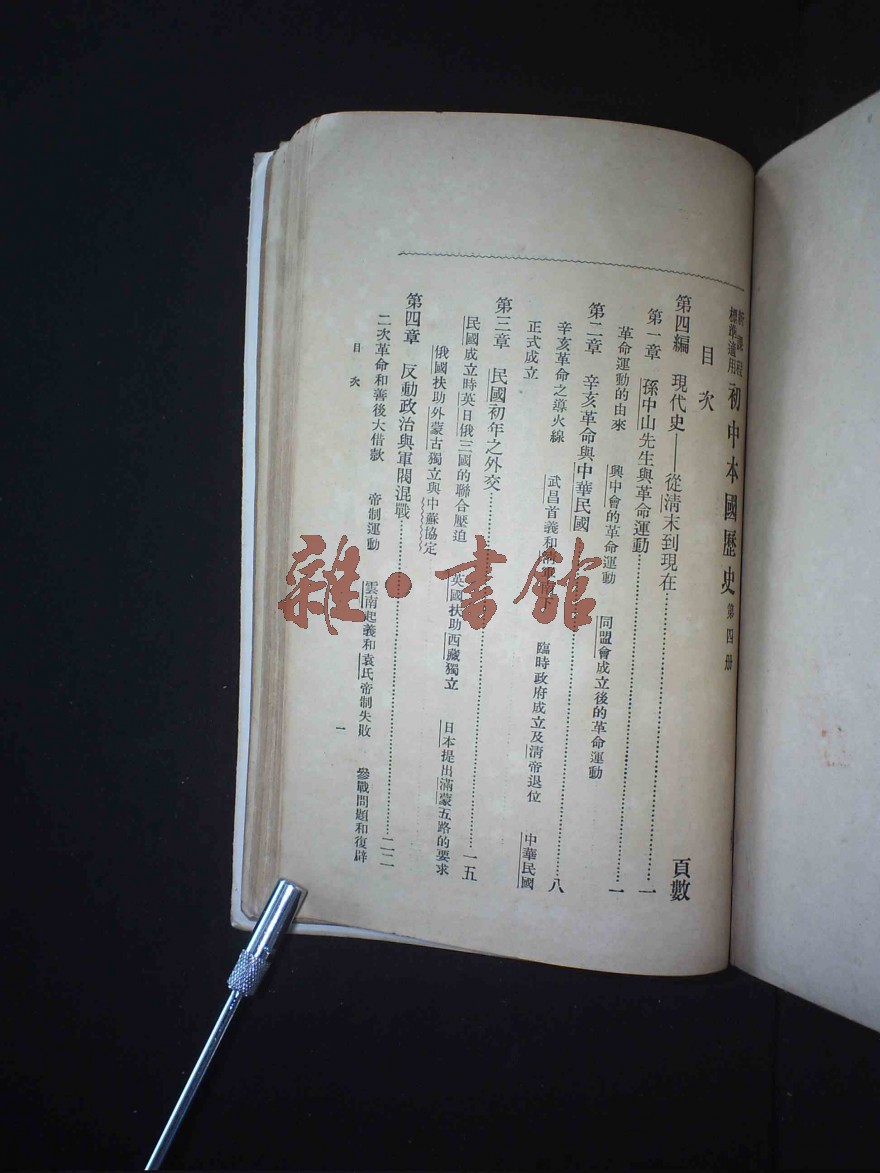 新課程標準適用 初中本國歷史 第四册
目次
頁數
第四編 現代史——從清末到現在………一
第一章 孫中山先生與革命運動………一
革命運動的由來 興中會的革命運動 同盟會成立後的革命運動
第二章 辛亥革命與中華民國………八
辛亥革命之導火線 武昌首義和 臨時政府成立及清帝退位 中華民國
正式成立
第三章 民國初年之外交………一五
民國成立時英日俄三國的聯合壓迫
俄國扶助外蒙古獨立與中蘇協定 英國扶助西藏獨立 日本提出滿蒙五路的要求
第四章 反動政治與軍閥混戰………二二
二次革命和善後大借款 帝制運動 雲南起義和袁氏帝制失敗 參戰問題和復辟
目次
一
雜·書館